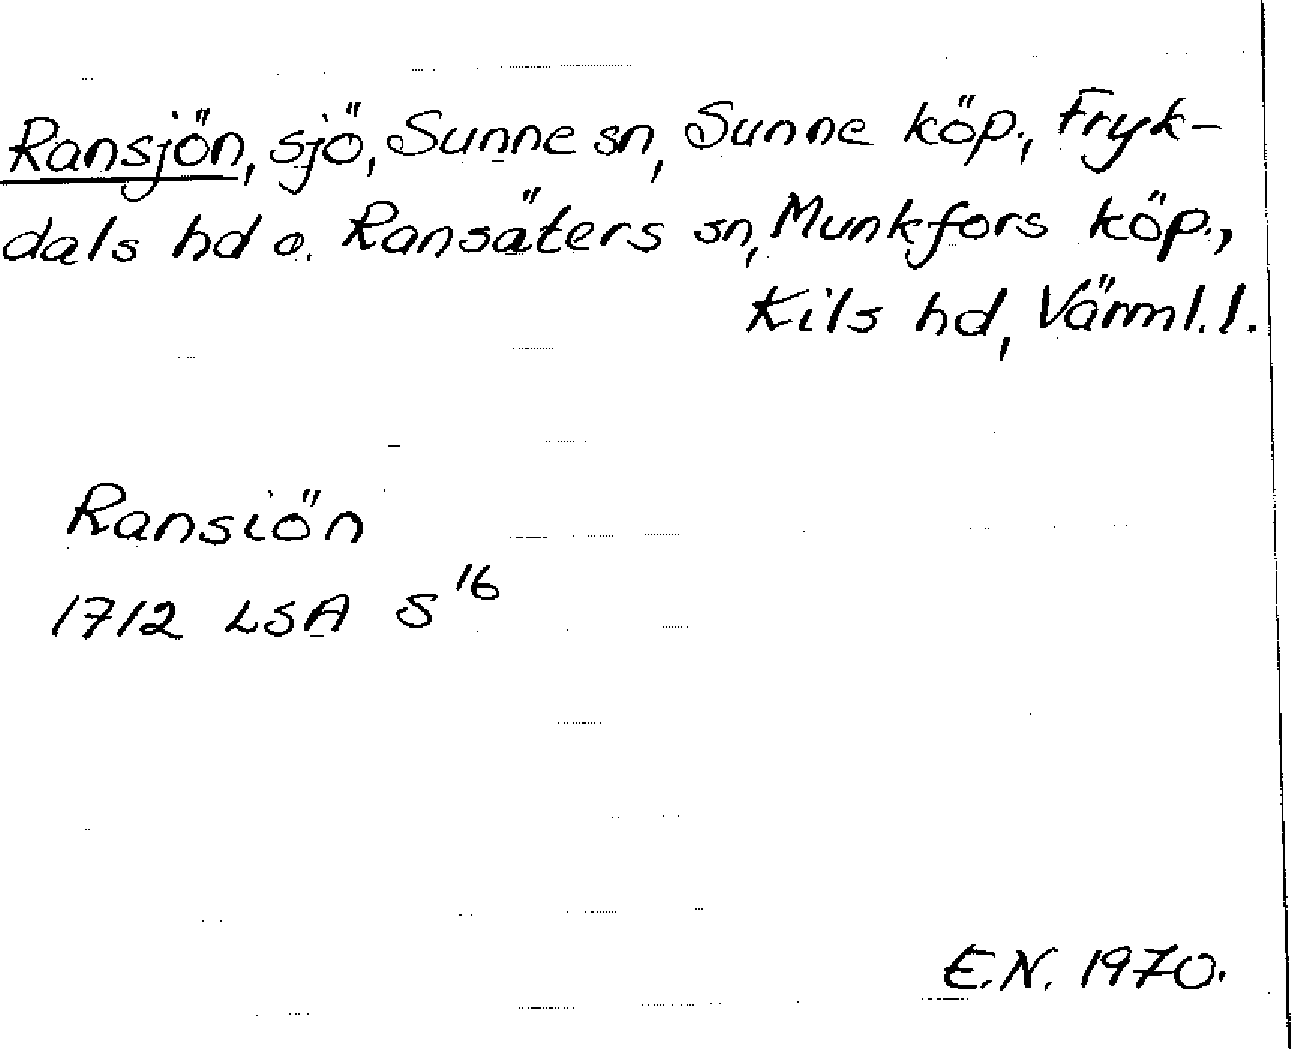 Ransjön, sjö, Sunne sn, Sunne köp., Fryk-
dals hd o. Ransäters sn, Munkfors köp.,
Kils hd, Värml. l.
Ransiön
1712 LSA S 16
E.N. 1970.